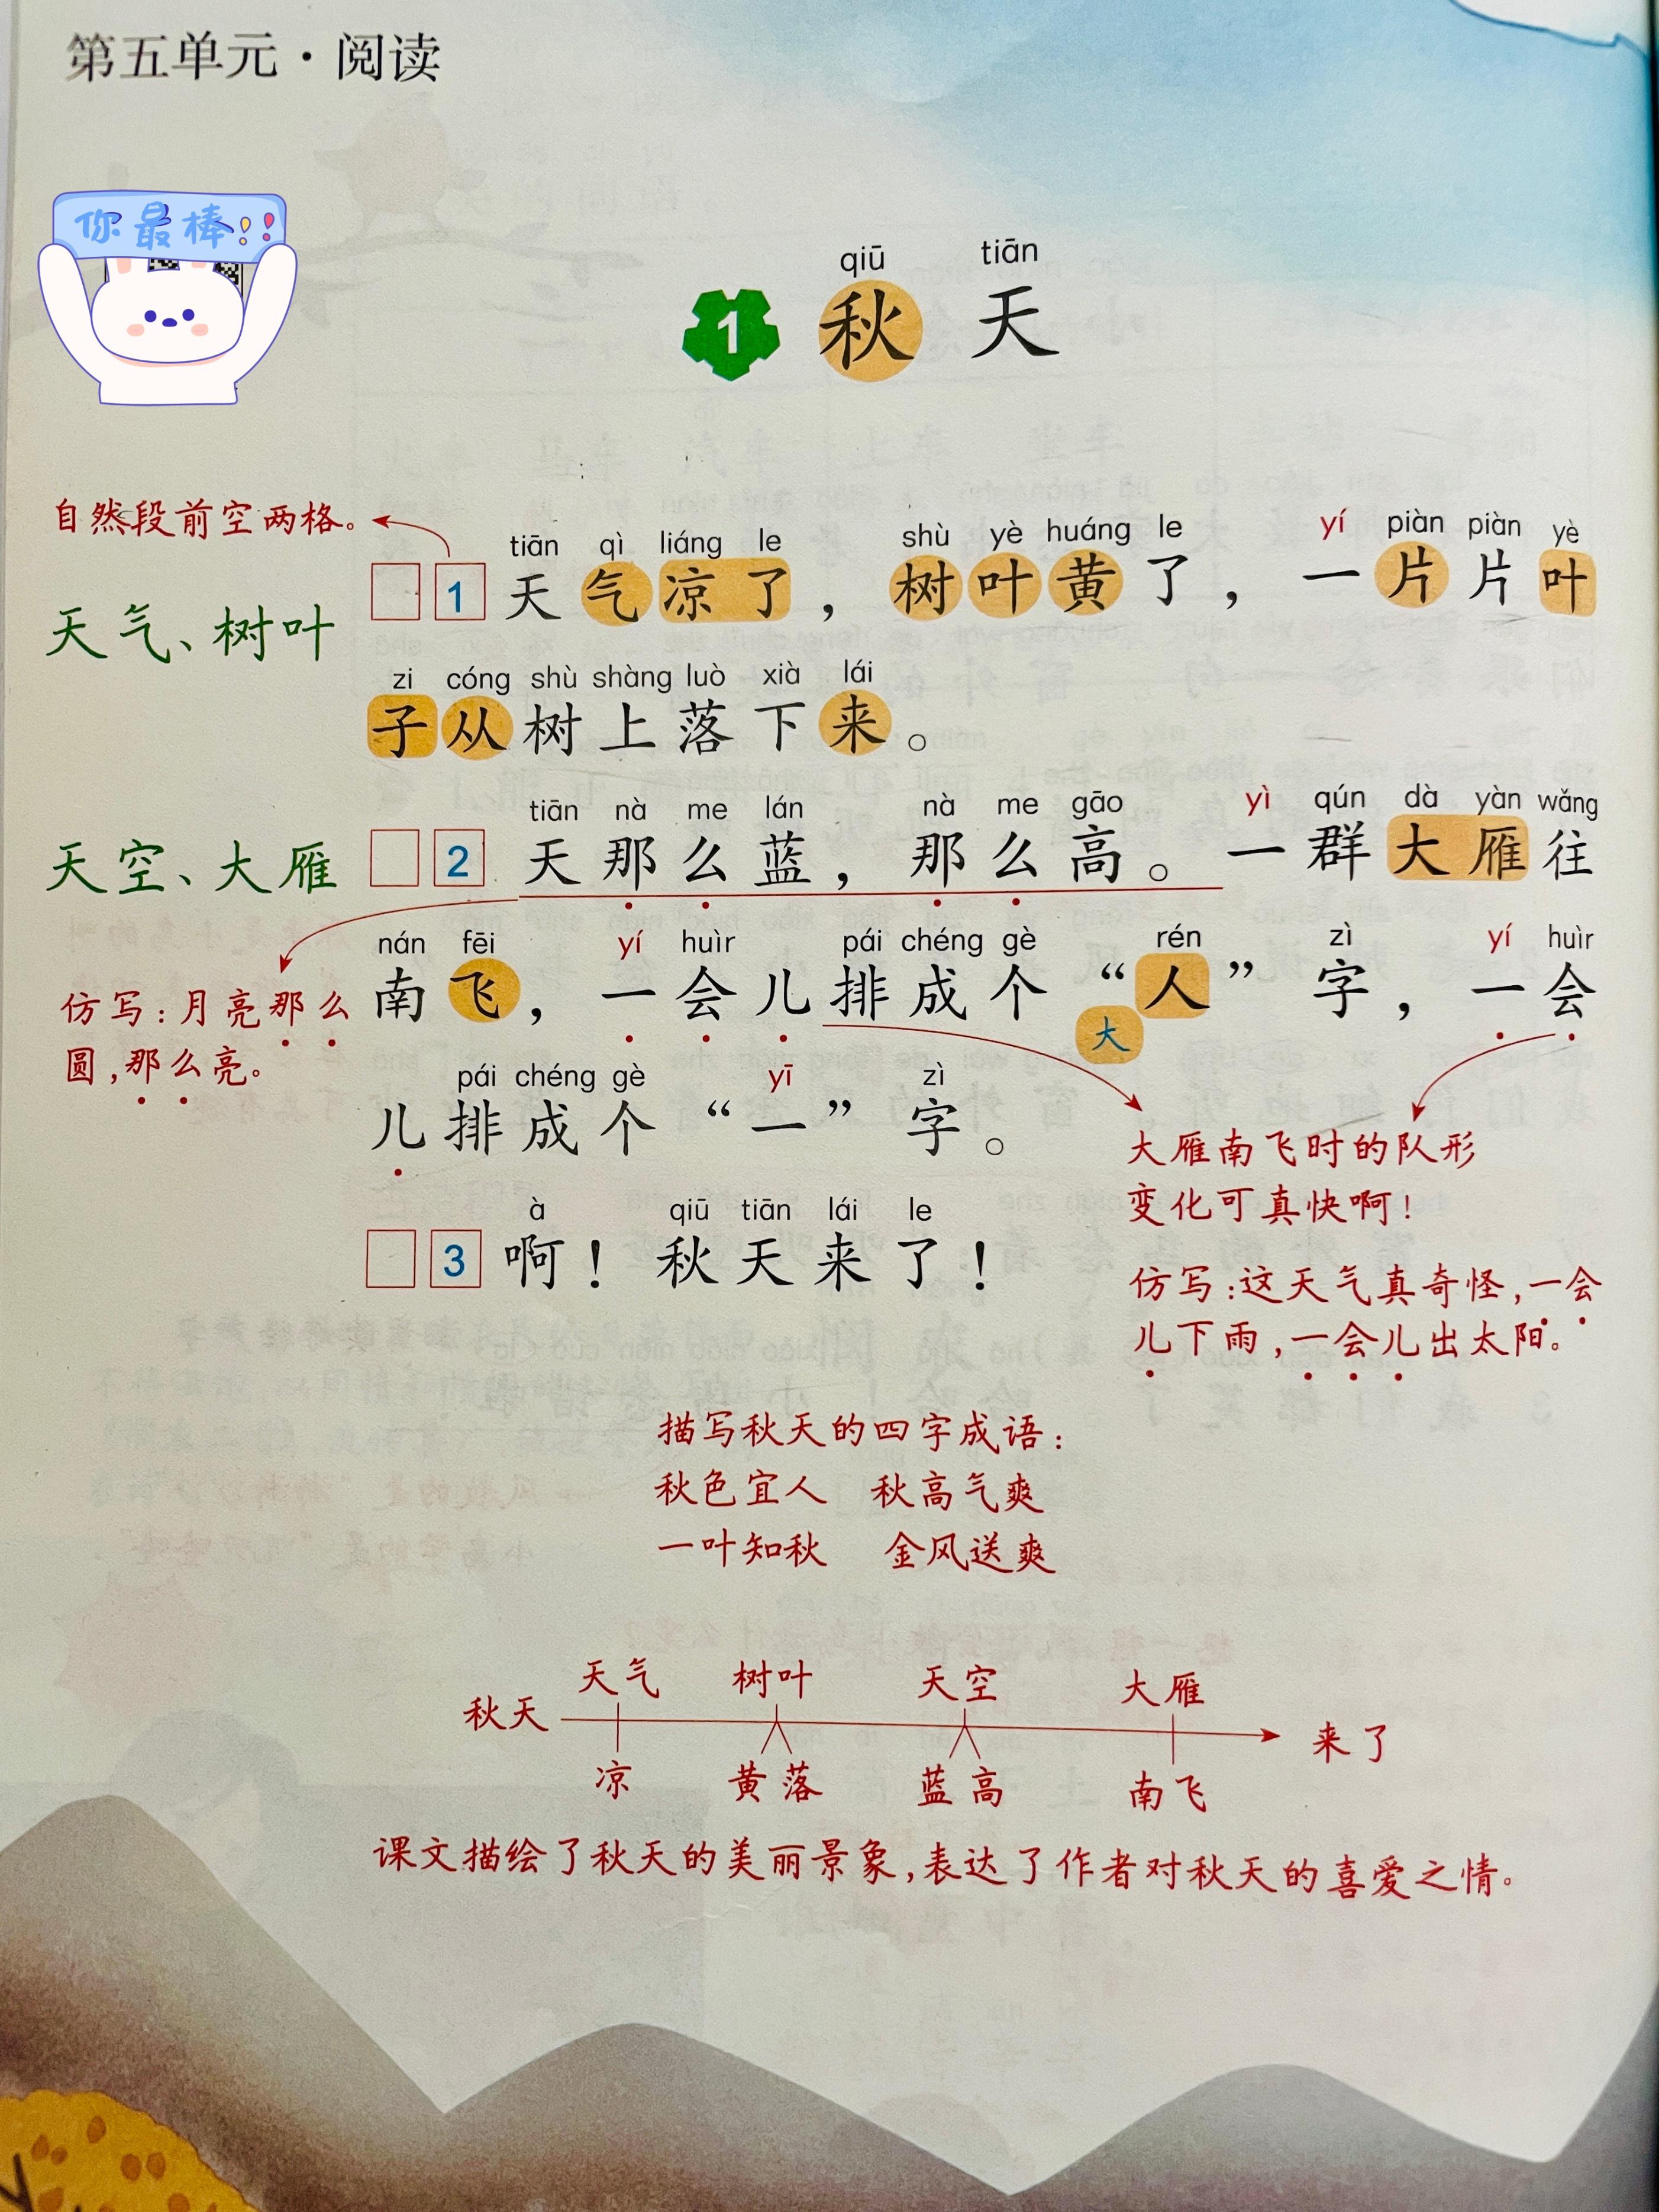 第五单元·阅读
你最棒!!
qiū tiān
1 秋天
自然段前空两格。
tiān qì liáng le shù yè huáng le yí piàn piàn yè
1 天气凉了，树叶黄了，一片片叶
天气、树叶
zi cóng shù shàng luò xià lái
子从树上落下来。
tiān nà me lán nà me gāo yì qún dà yàn wǎng
天空、大雁
2 天那么蓝，那么高。一群大雁往
nán fēi yí huìr pái chéng gè rén zì yí huìr
南飞，一会儿排成个“人”字，一会
大
仿写:月亮那么
圆,那么亮。
pái chéng gè yī zì
儿排成个“一”字。
大雁南飞时的队形
变化可真快啊!
à qiū tiān lái le
3 啊！秋天来了！
仿写:这天气真奇怪,一会
儿下雨,一会儿出太阳。
描写秋天的四字成语:
秋色宜人 秋高气爽
一叶知秋 金风送爽
天气 树叶 天空 大雁
秋天 来了
凉 黄 落 蓝 高 南飞
课文描绘了秋天的美丽景象,表达了作者对秋天的喜爱之情。